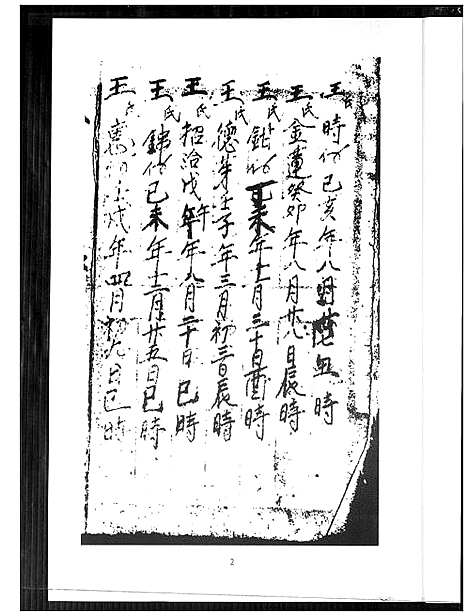 王氏時仂己亥年八月廿七丑時
王氏金蓮癸卯年八月廿八日辰時
王氏 未年十一月三十日酉時
王氏德 壬子年三月初三日辰時
王氏招治戊午年八月二十日巳時
王氏錦仂己未年十二月廿五日巳時
王氏 戌年四月初九日巳時
2